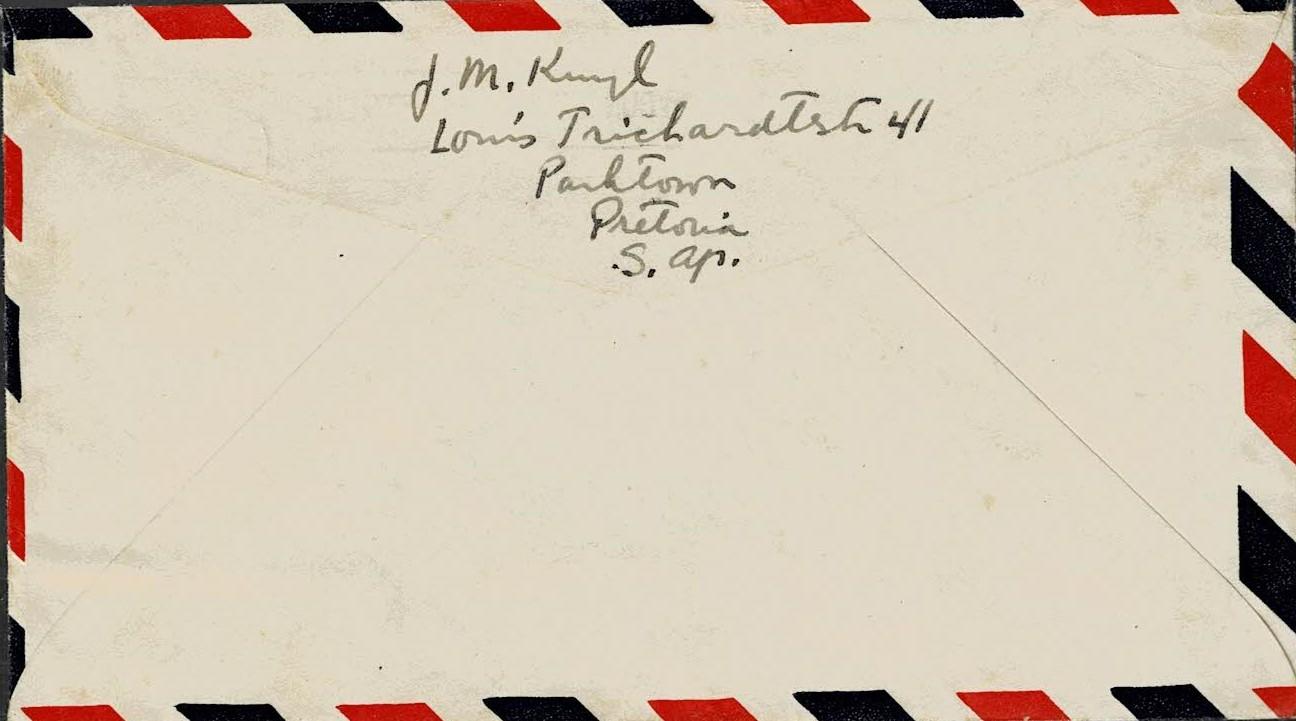 J. M. Kuyl
Louis Trichardtstr 41
Parktown
Pretoria
S. Af.